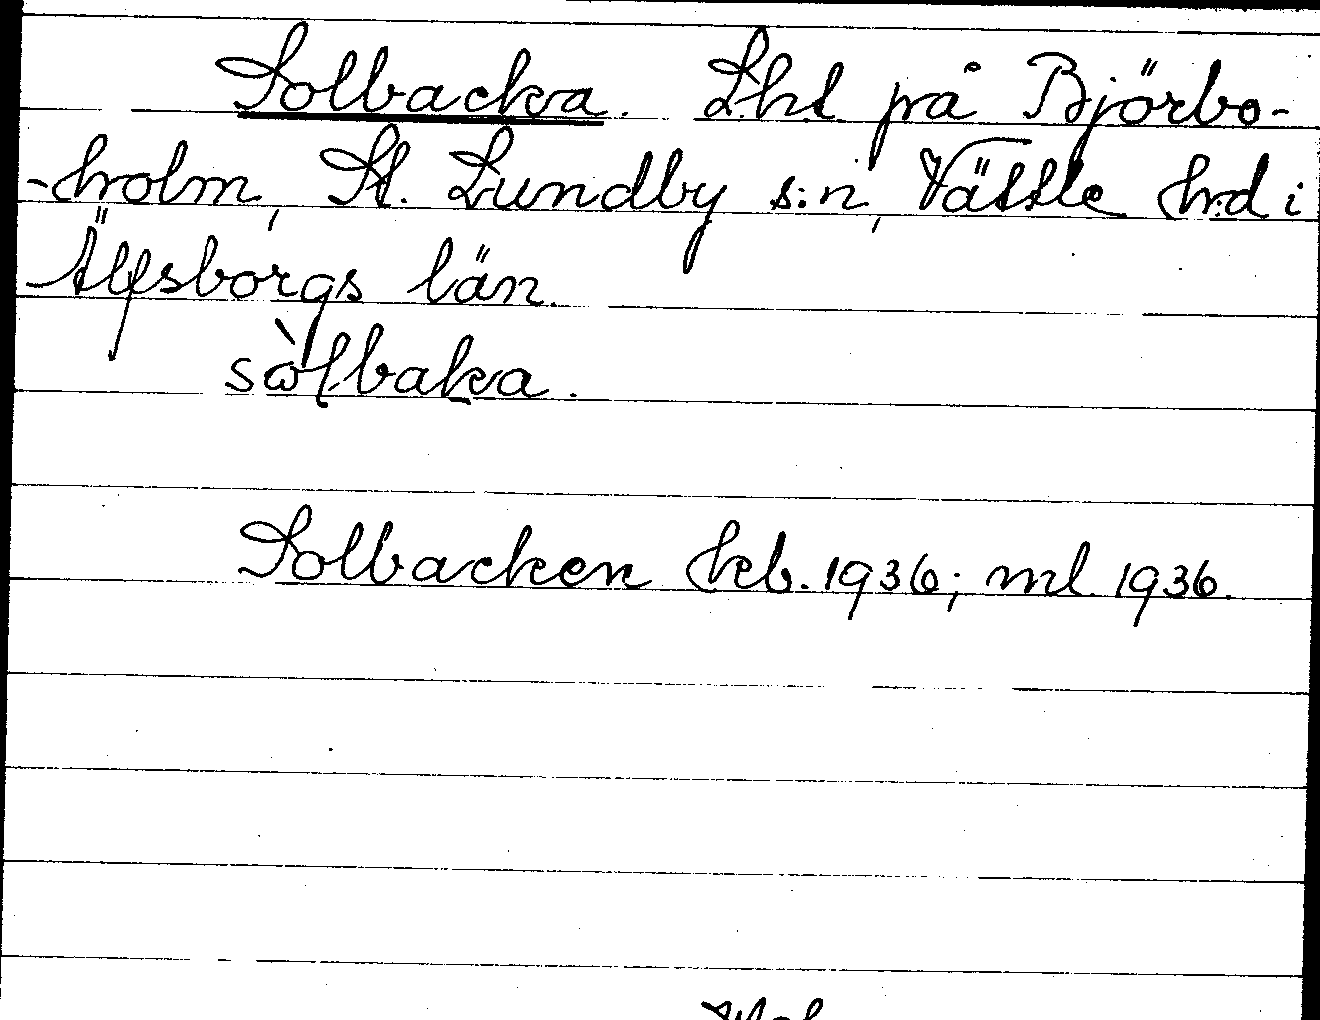 Solbacka. Lht på Björbo-
-holm, St. Lundby s:n, Vättle hd i
Älfsborgs län.
sὼlbaka.
Solbacken kb. 1936; ml 1936.